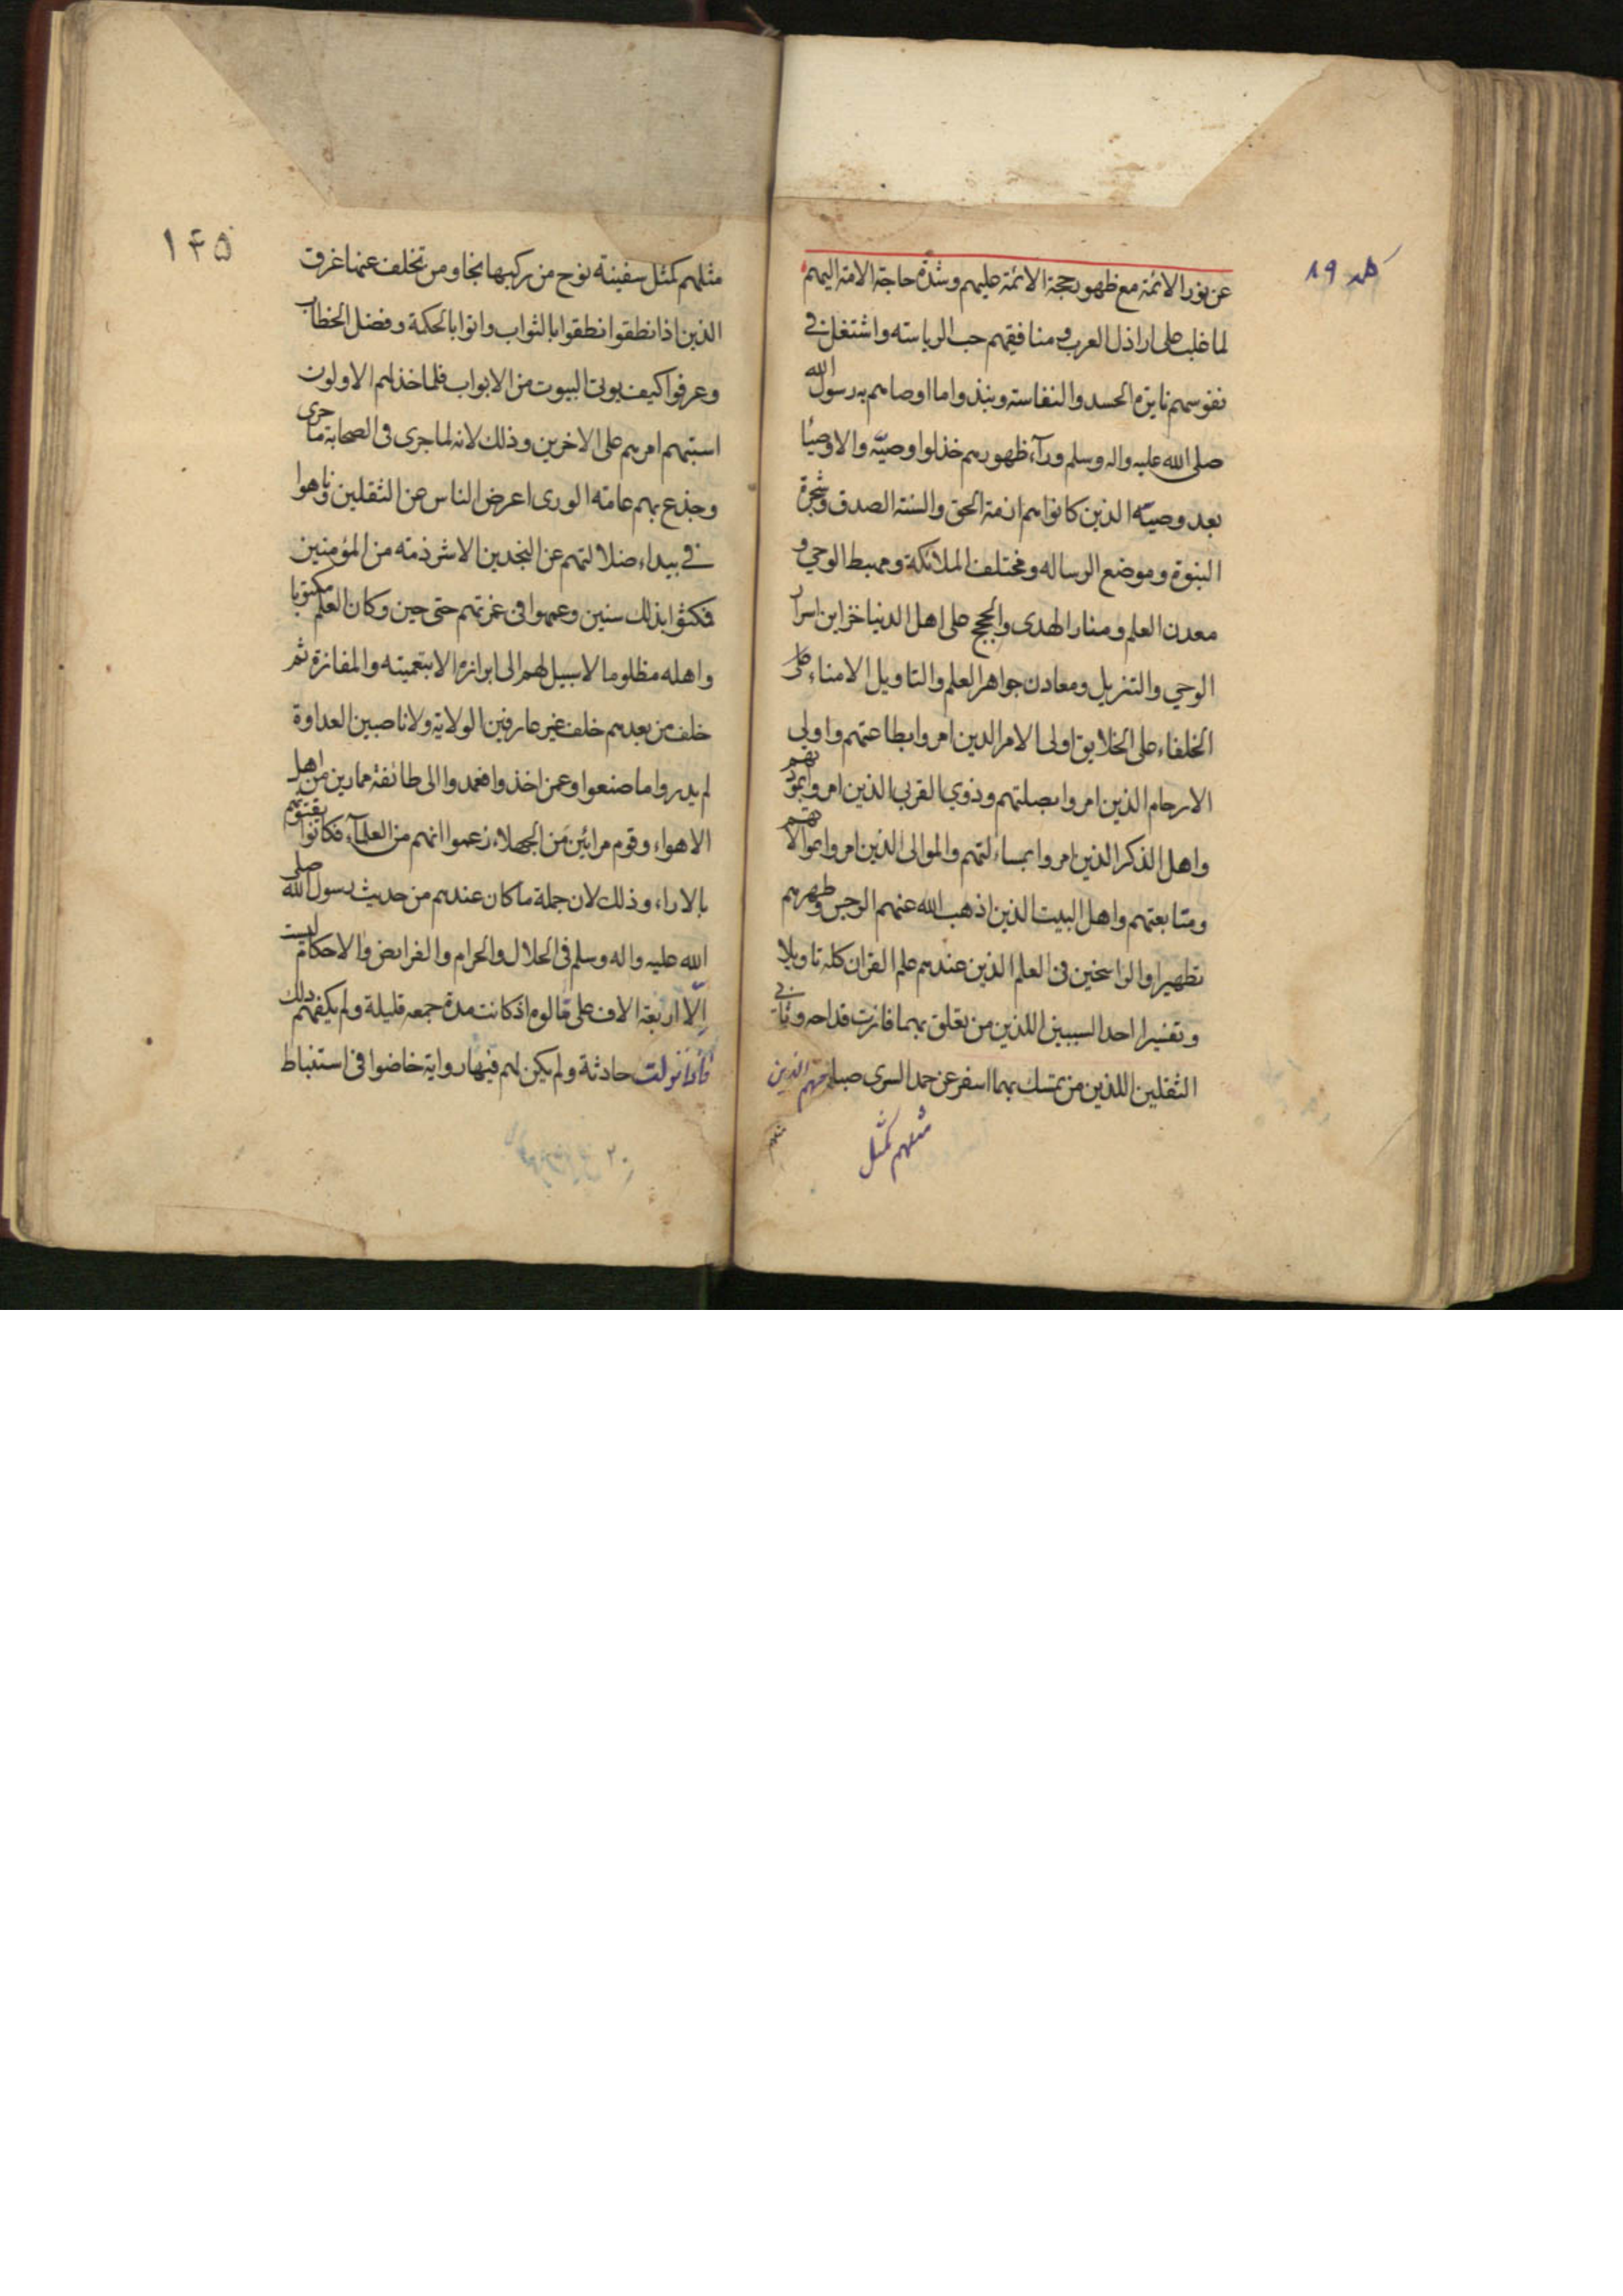 كلمه ٨٩
عن نور الائمة مع ظهور حجة الائمة عليهم وشدة حاجة الامة اليهم
لما غلب على اراذل العرب ومنافقيهم حب الرياسته واشتغل في
نفوسهم نايرة الحسد والنفاسته ونبذوا ما اوصاهم به رسول الله
صلى الله عليه واله وسلم ورآء ظهورهم خذلوا وصيّه والاوصيا
بعد وصيّه الذين كانوا هم ازمة الحق والسنة الصدق وشجرة
النبوة وموضع الرساله ومختلف الملائكة ومهبط الوحي و
معدن العلم ومنار الهدى والحجج على اهل الدنيا خزاين اسرار
الوحي والتنزيل ومعادن جواهر العلم والتاويل الامناء على
الخلفاء على الخلايق اولى الامر الذين امروا بطاعتهم واولي
الارحام الذين امروا بصلتهم وذوي القربى الذين امروا بمودتهم
واهل الذكر الذين امروا بمساءلتهم والموالى الذين امروا بموالاتهم
ومتابعتهم واهل البيت الذين اذهب الله عنهم الرجس وطهرهم
تطهيرا والراسخين في العلم الذين عندهم علم القران كله تاويلا
وتفسيرا احد السببين اللذين من تعلق بهما فازت قداحه وثانى
الثقلين اللذين من تمسك بهما اسفر عن حمد السرى صباحهم الذين
مثلهم كمثل
مثلهم
١٤٥
مثلهم كمثل سفينة نوح من ركبها نجا ومن تخلف عنها غرق
الذين اذا نطقوا نطقوا بالثواب واتوا بالحكمة وفضل الخطاب
وعرفوا كيف يوتى البيوت من الابواب فلما خذلهم الاولون
استبهم امرهم على الاخرين وذلك لانه لما جرى فى الصحابة ما جرى
وجذع بهم عامة الورى اعرض الناس عن الثقلين وتاهوا
في بيداء ضلالتهم عن النجدين الا شرذمة من المؤمنين
فمكثوا بذلك سنين وعمهوا فى غمرتهم حتى حين وكان العلم مكتوما
واهله مظلوما لا سبيل لهم الى ابرازه الا بتعميته والمفازة ثم
خلف من بعدهم خلف غير عارفين الولاية ولا ناصبين العداوة
لم يدروا ما صنعوا وعمن اخذوا فعمدوا الى طائفة ممارين من اهل
الاهواء وقوم مرائين من الجهلاء زعموا انهم من العلمآء فكانوا يفتونهم
بالاراء وذلك لان جملة ما كان عندهم من حديث رسول الله صلى
الله عليه واله وسلم فى الحلال والحرام والفرايض والاحكام ليست
الّا اربعة الاف على قالوه اذ كانت مدة جمعه قليلة ولم يكفهم ذلك
فاذا نزلت حادثة ولم يكن لهم فيها رواية خاضوا فى استنباط